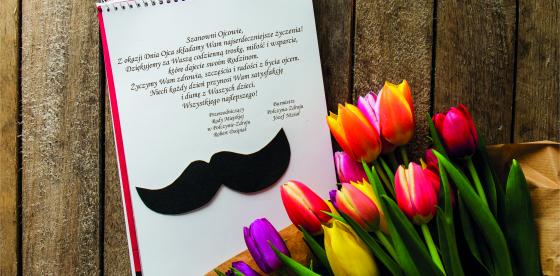 Szanowni Ojcowie,
Z okazji Dnia Ojca składamy Wam najserdeczniejsze życzenia!
Dziękujemy za Waszą codzienną troskę, miłość i wsparcie,
które dajecie swoim Rodzinom.
Życzymy Wam zdrowia, szczęścia i radości z bycia ojcem.
Niech każdy dzień przynosi Wam satysfakcję
i dumę z Waszych dzieci.
Wszystkiego najlepszego!
Przewodniczący
Rady Miejskiej
w Połczynie-Zdroju
Robert Dwipiał
Burmistrz
Połczyna-Zdroju
Józef Misiał